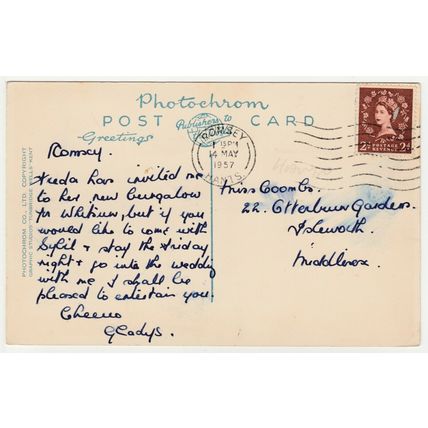 Photochrom
POST CARD
Publishers to
Greetings
ROMSEY
1 15PM
14 MAY
1957
HANTS.
2D POSTAGE REVENUE 2D
PHOTOCHROM CO., LTD. COPYRIGHT
GRAPHIC STUDIOS TUNBRIDGE WELLS KENT
Romsey.
Freda has invited me
to her new bungalow
in Whitsun, but if you
would like to come with
Sybil & stay the Friday
night & go into the wedding
with me I shall be
pleased to entertain you.
Cheerio
Gladys.
Miss Coombs.
22. Otterburn Gardens.
Isleworth.
Middlesex.